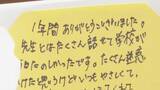 1年間ありがとうございました。
先生とはたくさん話せて学校が
たのしかったです。たくさん迷惑
けた思うけどいつもやさしくて、